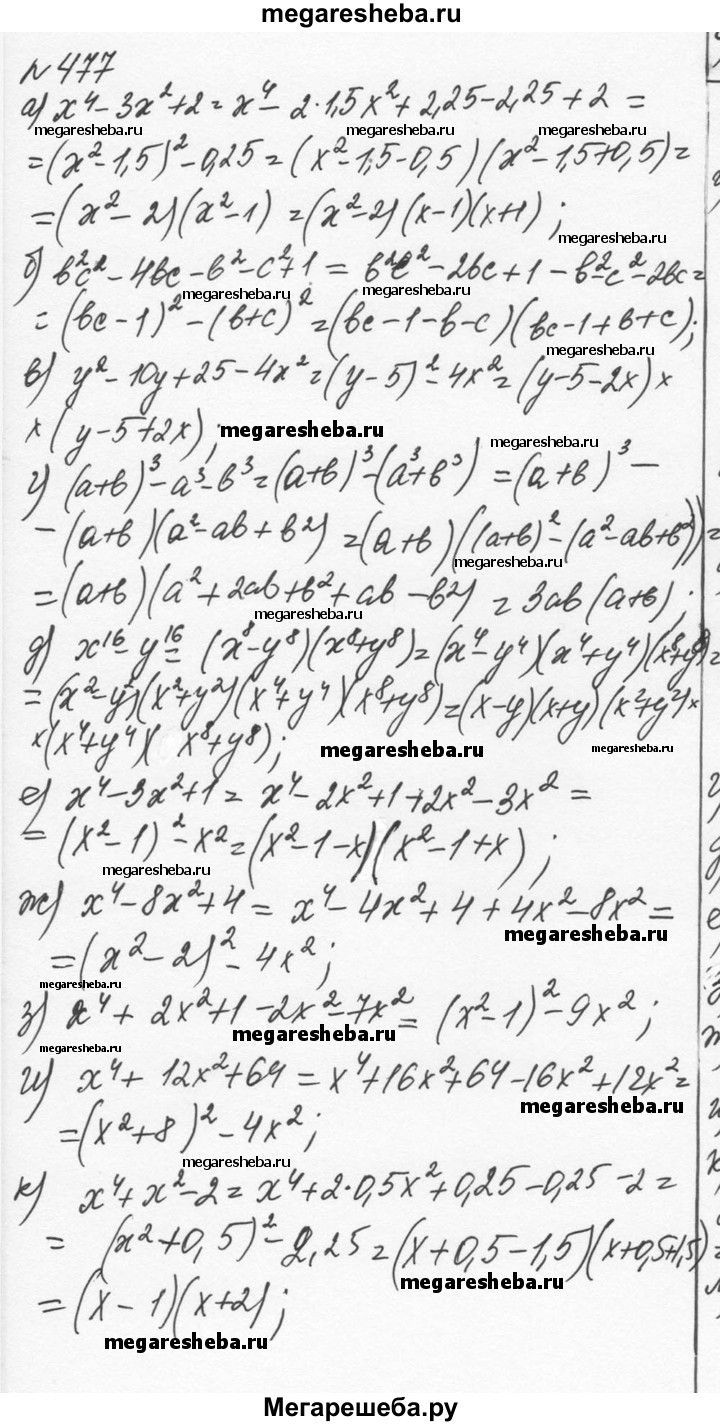 megaresheba.ru
№ 477
а) x⁴ - 3x² + 2 = x⁴ - 2·1,5x² + 2,25 - 2,25 + 2 =
megaresheba.ru megaresheba.ru megaresheba.ru
= (x² - 1,5)² - 0,25 = (x² - 1,5 - 0,5)(x² - 1,5 + 0,5) =
= (x² - 2)(x² - 1) = (x² - 2)(x - 1)(x + 1);
megaresheba.ru
б) в²с² - 4вс - в² - с² + 1 = в²с² - 2вс + 1 - в² - с² - 2вс =
megaresheba.ru megaresheba.ru
= (вс - 1)² - (в + с)² = (вс - 1 - в - с)(вс - 1 + в + с);
в) y² - 10y + 25 - 4x² = (y - 5)² - 4x² = (y - 5 - 2x) ×
× (y - 5 + 2x); megaresheba.ru
megaresheba.ru
г) (а+в)³ - а³ - в³ = (а+в)³ - (а³ + в³) = (а + в)³ -
- (а + в)(а² - ав + в²) = (а + в)((а+в)² - (а² - ав + в²)) =
megaresheba.ru
= (а+в)(а² + 2ав + в² + ав - в²) = 3ав(а+в);
megaresheba.ru
д) x¹⁶ - y¹⁶ = (x⁸ - y⁸)(x⁸ + y⁸) = (x⁴ - y⁴)(x⁴ + y⁴)(x⁸ + y⁸) =
= (x² - y²)(x² + y²)(x⁴ + y⁴)(x⁸ + y⁸) = (x - y)(x + y)(x² + y²) ×
× (x⁴ + y⁴)(x⁸ + y⁸); megaresheba.ru
е) x⁴ - 3x² + 1 = x⁴ - 2x² + 1 + 2x² - 3x² =
= (x² - 1)² - x² = (x² - 1 - x)(x² - 1 + x);
megaresheba.ru
ж) x⁴ - 8x² + 4 = x⁴ - 4x² + 4 + 4x² - 8x² =
megaresheba.ru
= (x² - 2)² - 4x²;
megaresheba.ru
з) x⁴ + 2x² + 1 - 2x² - 7x² = (x² - 1)² - 9x²;
megaresheba.ru
megaresheba.ru
и) x⁴ + 12x² + 64 = x⁴ + 16x² + 64 - 16x² + 12x² =
megaresheba.ru
= (x² + 8)² - 4x²;
megaresheba.ru
к) x⁴ + x² - 2 = x⁴ + 2·0,5x² + 0,25 - 0,25 - 2 =
= (x² + 0,5)² - 2,25 = (x + 0,5 - 1,5)(x + 0,5 + 1,5) =
megaresheba.ru
= (x - 1)(x + 2);
megaresheba.ru
Мегарешеба.ру